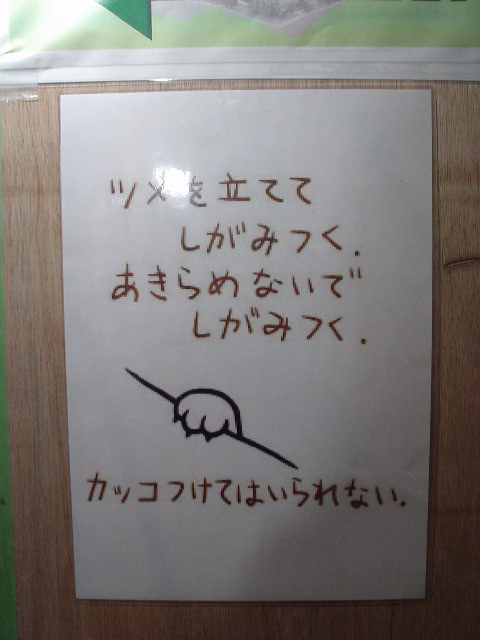 ツメを立てて
しがみつく.
あきらめないで
しがみつく.
カッコつけてはいられない.